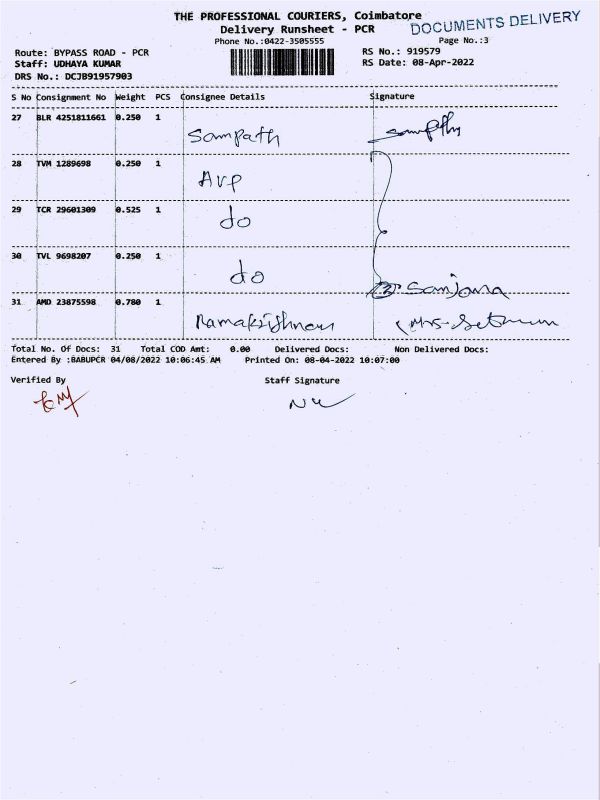 THE PROFESSIONAL COURIERS, Coimbatore
DOCUMENTS DELIVERY
Delivery Runsheet - PCR
Phone No.:0422-3505555
Page No.:3
Route: BYPASS ROAD - PCR
RS No.: 919579
Staff: UDHAYA KUMAR
RS Date: 08-Apr-2022
DRS No.: DCJB91957903
S No Consignment No Weight PCS Consignee Details Signature
27 BLR 4251811661 0.250 1 Sampath Sampath
28 TVM 1289698 0.250 1 AVP
29 TCR 29601309 0.525 1 do
30 TVL 9698207 0.250 1 do Sanjana
31 AMD 23875598 0.780 1 Ramakrishnan Mrs.
Total No. Of Docs: 31 Total COD Amt: 0.00 Delivered Docs: Non Delivered Docs:
Entered By :BABUPCR 04/08/2022 10:06:45 AM Printed On: 08-04-2022 10:07:00
Verified By Staff Signature